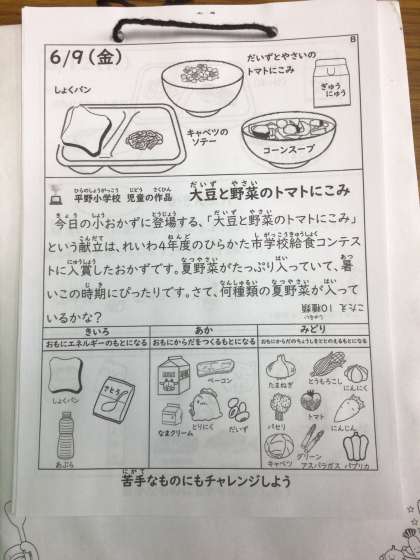 B
6/9(金)
だいずとやさいの
トマトにこみ
しょくパン
ぎゅう
にゅう
キャベツの
ソテー
コーンスープ
平野小学校 児童の作品 大豆と野菜のトマトにこみ
今日の小おかずに登場する、「大豆と野菜のトマトにこみ」
という献立は、れいわ4年度のひらかた市学校給食コンテス
トに入賞したおかずです。夏野菜がたっぷり入っていて、暑
いこの時期にぴったりです。さて、何種類の夏野菜が入って
いるかな?
こたえ 10種類
きいろ あか みどり
おもにエネルギーのもとになる おもにからだをつくるもとになる おもにからだのちょうしをととのえるもとになる
しょくパン
さとう
あぶら
ベーコン
なまクリーム
とりにく
だいず
たまねぎ
とうもろこし
にんにく
パセリ
トマト
にんじん
キャベツ
グリーン
アスパラガス
パプリカ
苦手なものにもチャレンジしよう